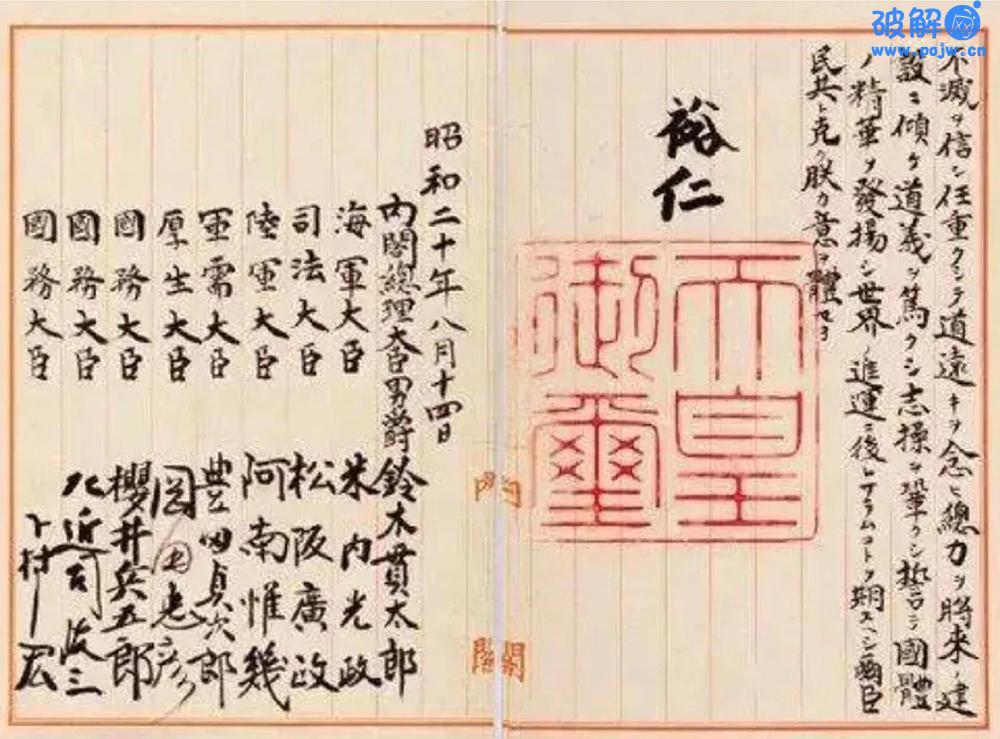 破解
www.pojw.cn
不滅ヲ信シ任重クシテ道遠キヲ念ヒ總力ヲ將來ノ建
設ニ傾ケ道義ヲ篤クシ志操ヲ鞏クシ誓テ國體
ノ精華ヲ發揚シ世界ノ進運ニ後レサラムコトヲ期スヘシ爾臣
民其レ克ク朕カ意ヲ體セヨ
裕仁
天皇
御璽
内閣
昭和二十年八月十四日
内閣總理大臣男爵 鈴木貫太郎
海軍大臣 米内光政
司法大臣 松阪廣政
陸軍大臣 阿南惟幾
軍需大臣 豊田貞次郎
厚生大臣 岡田忠彦
國務大臣 櫻井兵五郎
國務大臣 左近司政三
國務大臣 下村宏